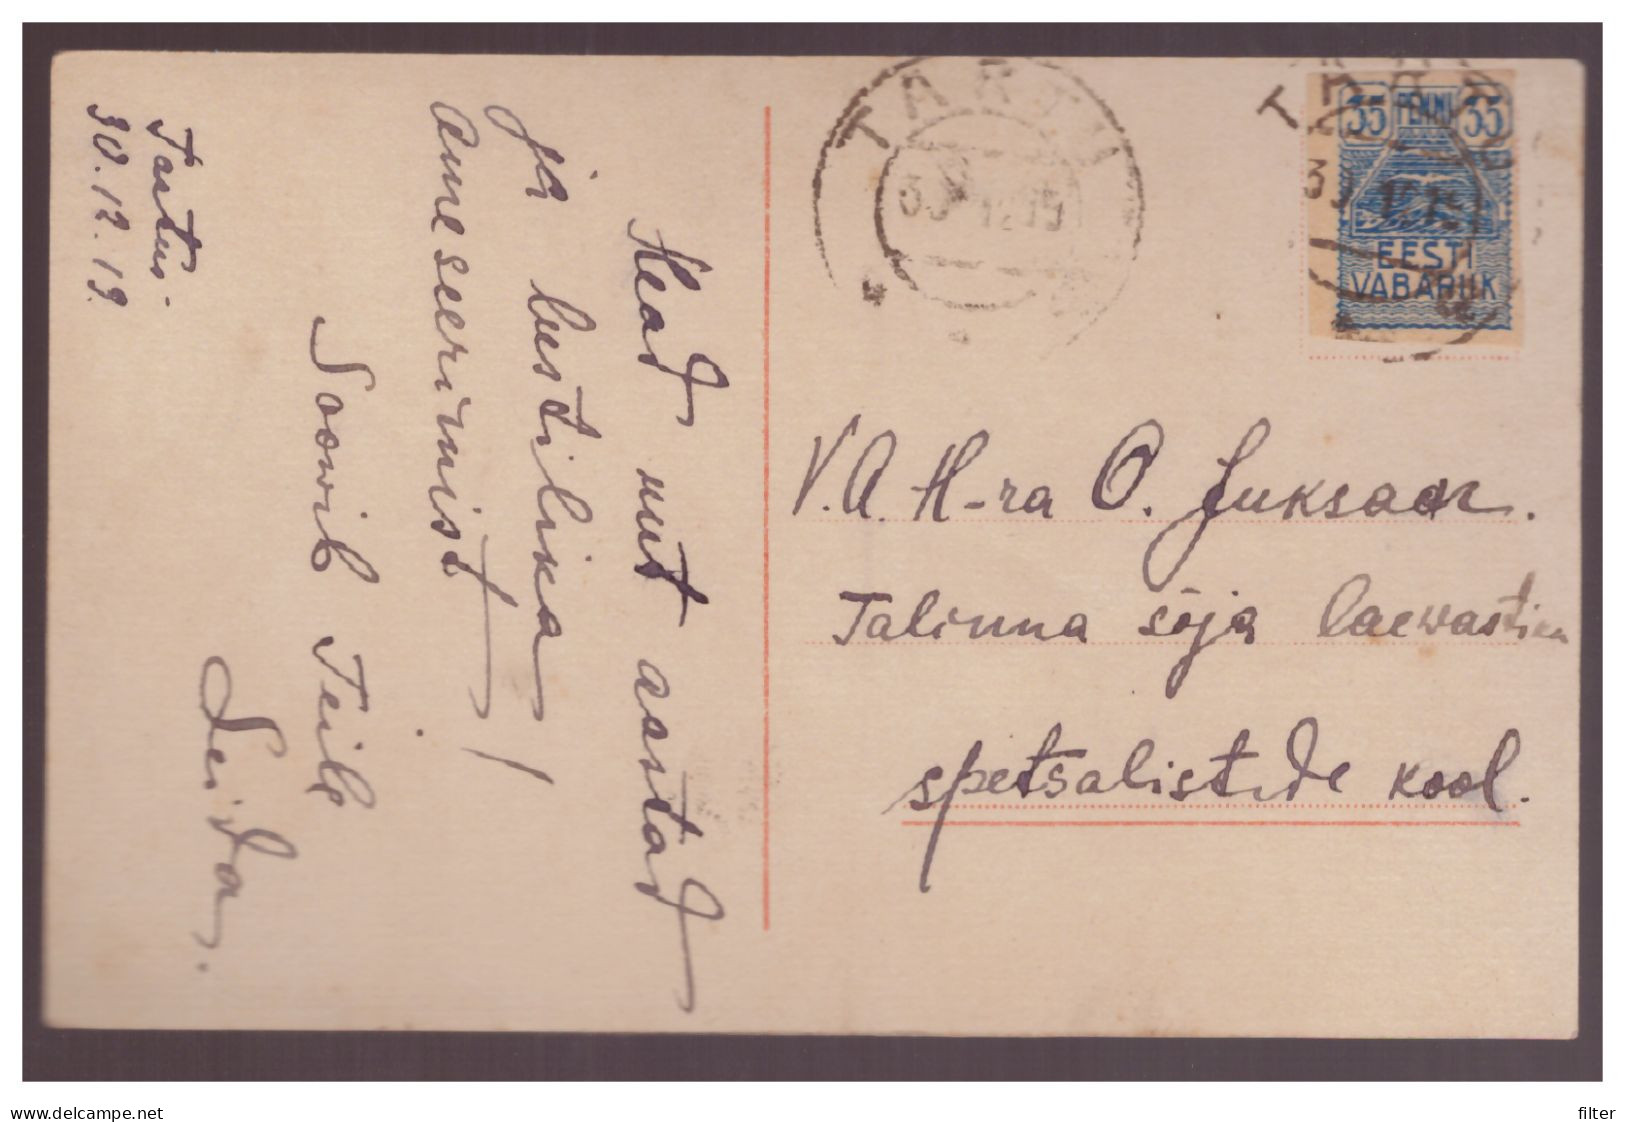 Tartus.
30.12.19.
Head uut astad
ja lustilika
ameseerimist!
Soovib Teile
Leida.
TARTU
30 12 19
TARTU
35 PENNI 35
EESTI
VABARIIK
V.A. H-ra O. Juksaar.
Talinna sõja laewastiku
spetsalistide kool.
www.delcampe.net
filter